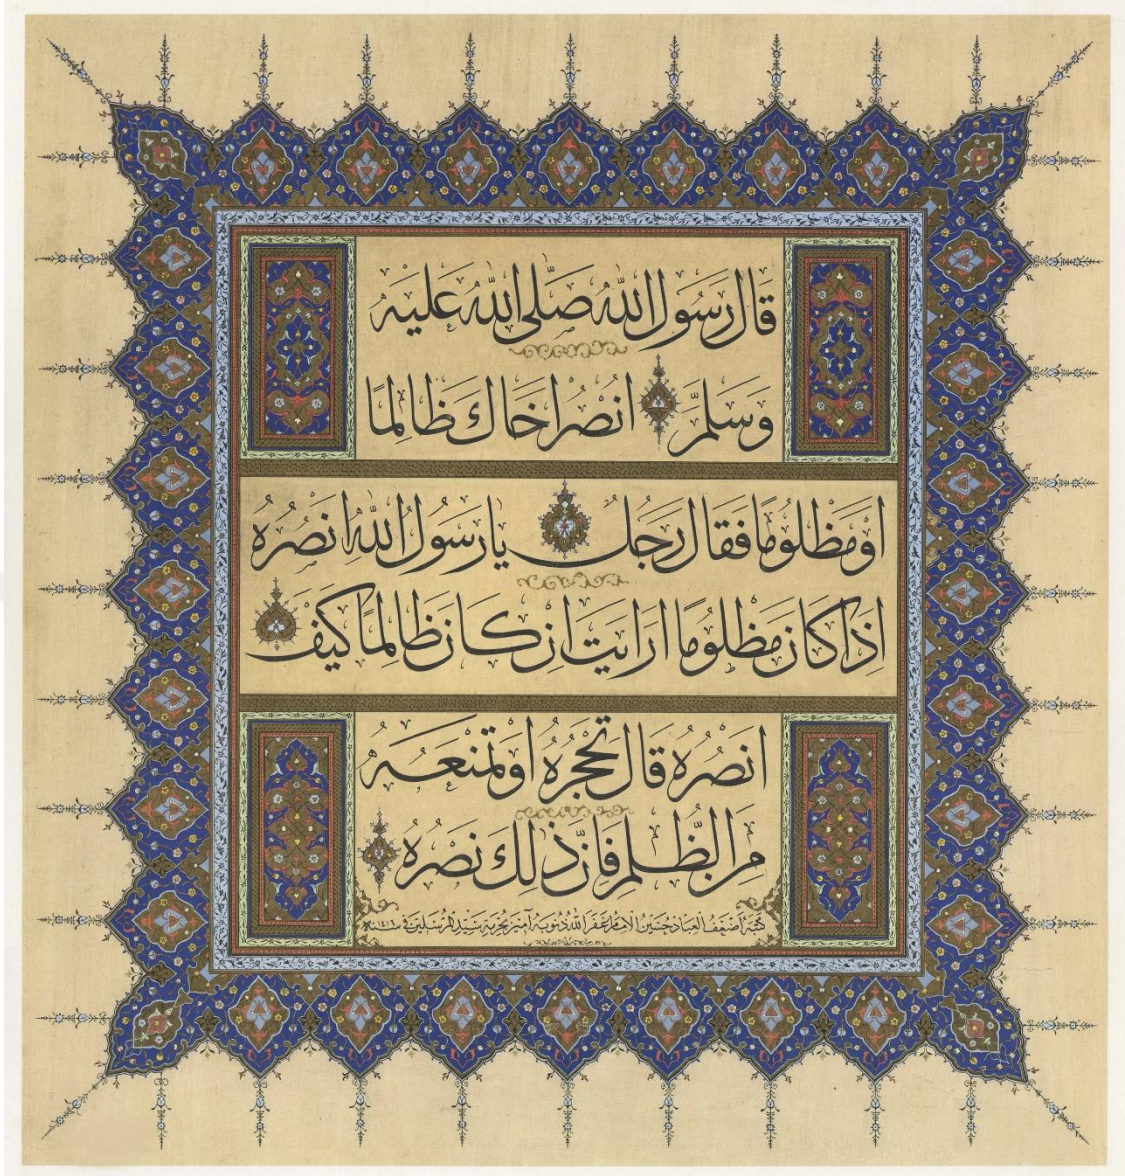 قال رسول الله صلى الله عليه
وسلم انصر اخاك ظالما
او مظلوما فقال رجل يا رسول الله انصره
اذا كان مظلوما ارايت ان كان ظالما كيف
انصره قال تحجزه او تمنعه
من الظلم فان ذلك نصره
كتبه أضعف العباد حسين الامام غفر الله ذنوبه آمين بحرمة سيد المرسلين في سنة